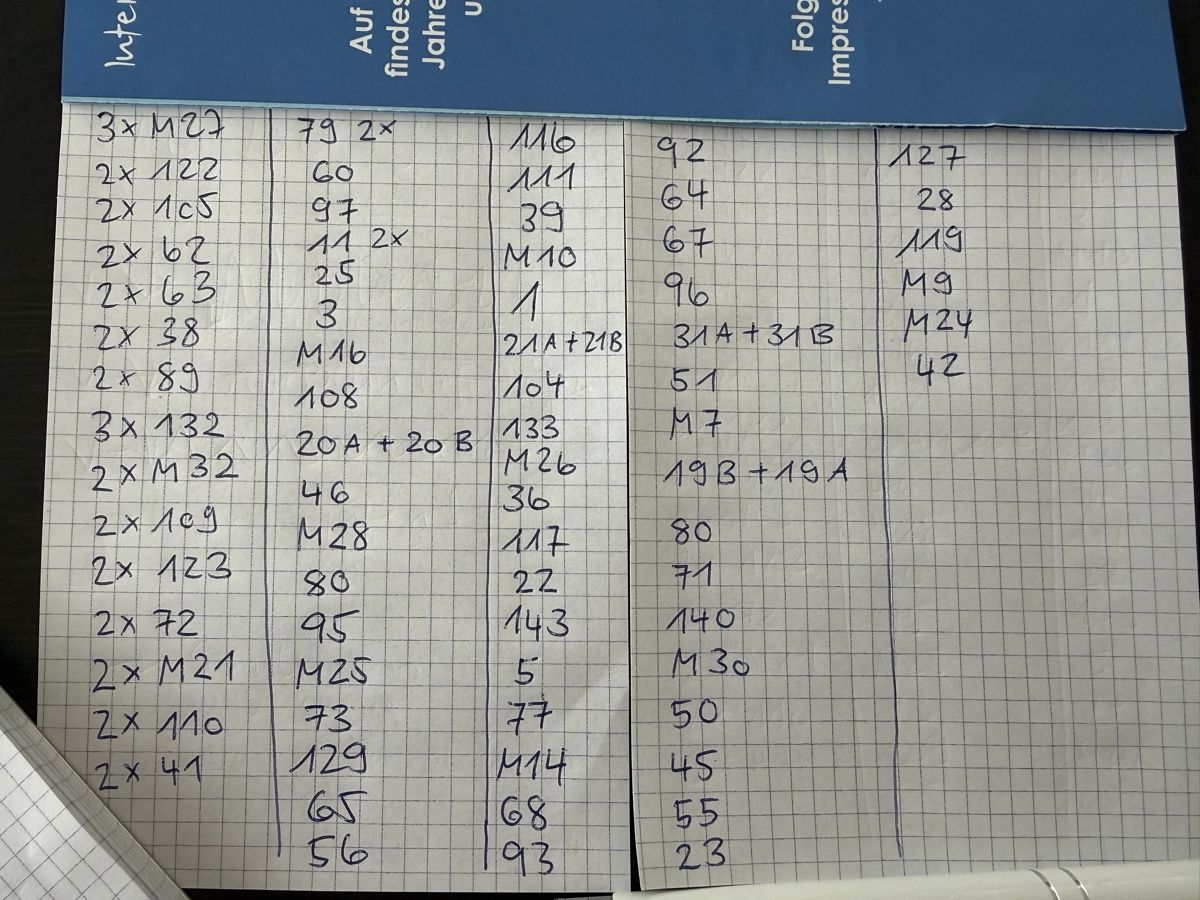 Inter
Auf
findes
Jahre
u
Folg
Impres
3x M27
2x 122
2x 105
2x 62
2x 63
2x 38
2x 89
3x 132
2x M32
2x 109
2x 123
2x 72
2x M21
2x 110
2x 41
79 2x
60
97
11 2x
25
3
M16
108
20A + 20B
46
M28
80
95
M25
73
129
65
56
116
111
39
M10
1
21A + 21B
104
133
M26
36
117
22
143
5
77
M14
68
93
92
64
67
96
31A + 31B
51
M7
19B + 19A
80
71
140
M30
50
45
55
23
127
28
119
M9
M24
42